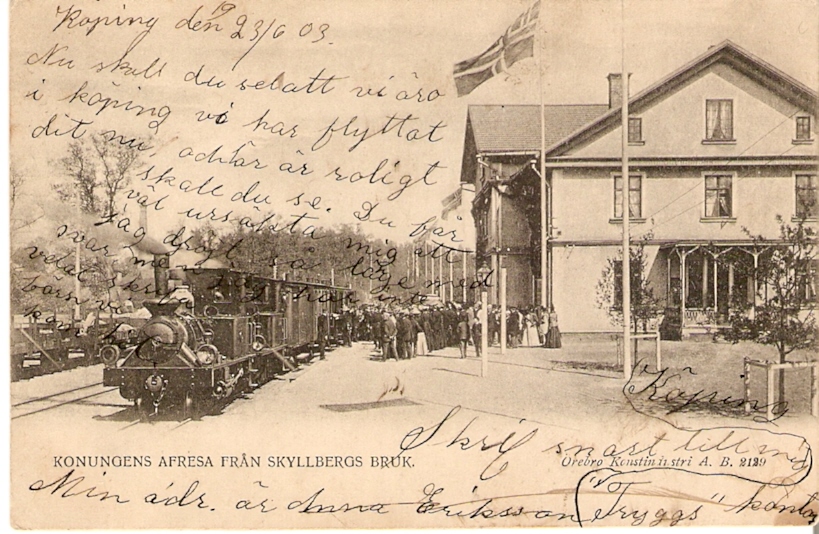 Köping den 23/6 1903.
Nu skall du se att vi äro
i köping vi har flyttat
dit nu, och här är roligt
skall du se. Du får
väl ursäkta mig att
jag dröjt så länge med
svar men jag har inte
velat skrif
barn vi
kom hit
Köping
Skrif snart till mig
KONUNGENS AFRESA FRÅN SKYLLBERGS BRUK.
Örebro Konstindustri A. B. 2129
Min adr. är Anna Eriksson "Tryggs" kontor